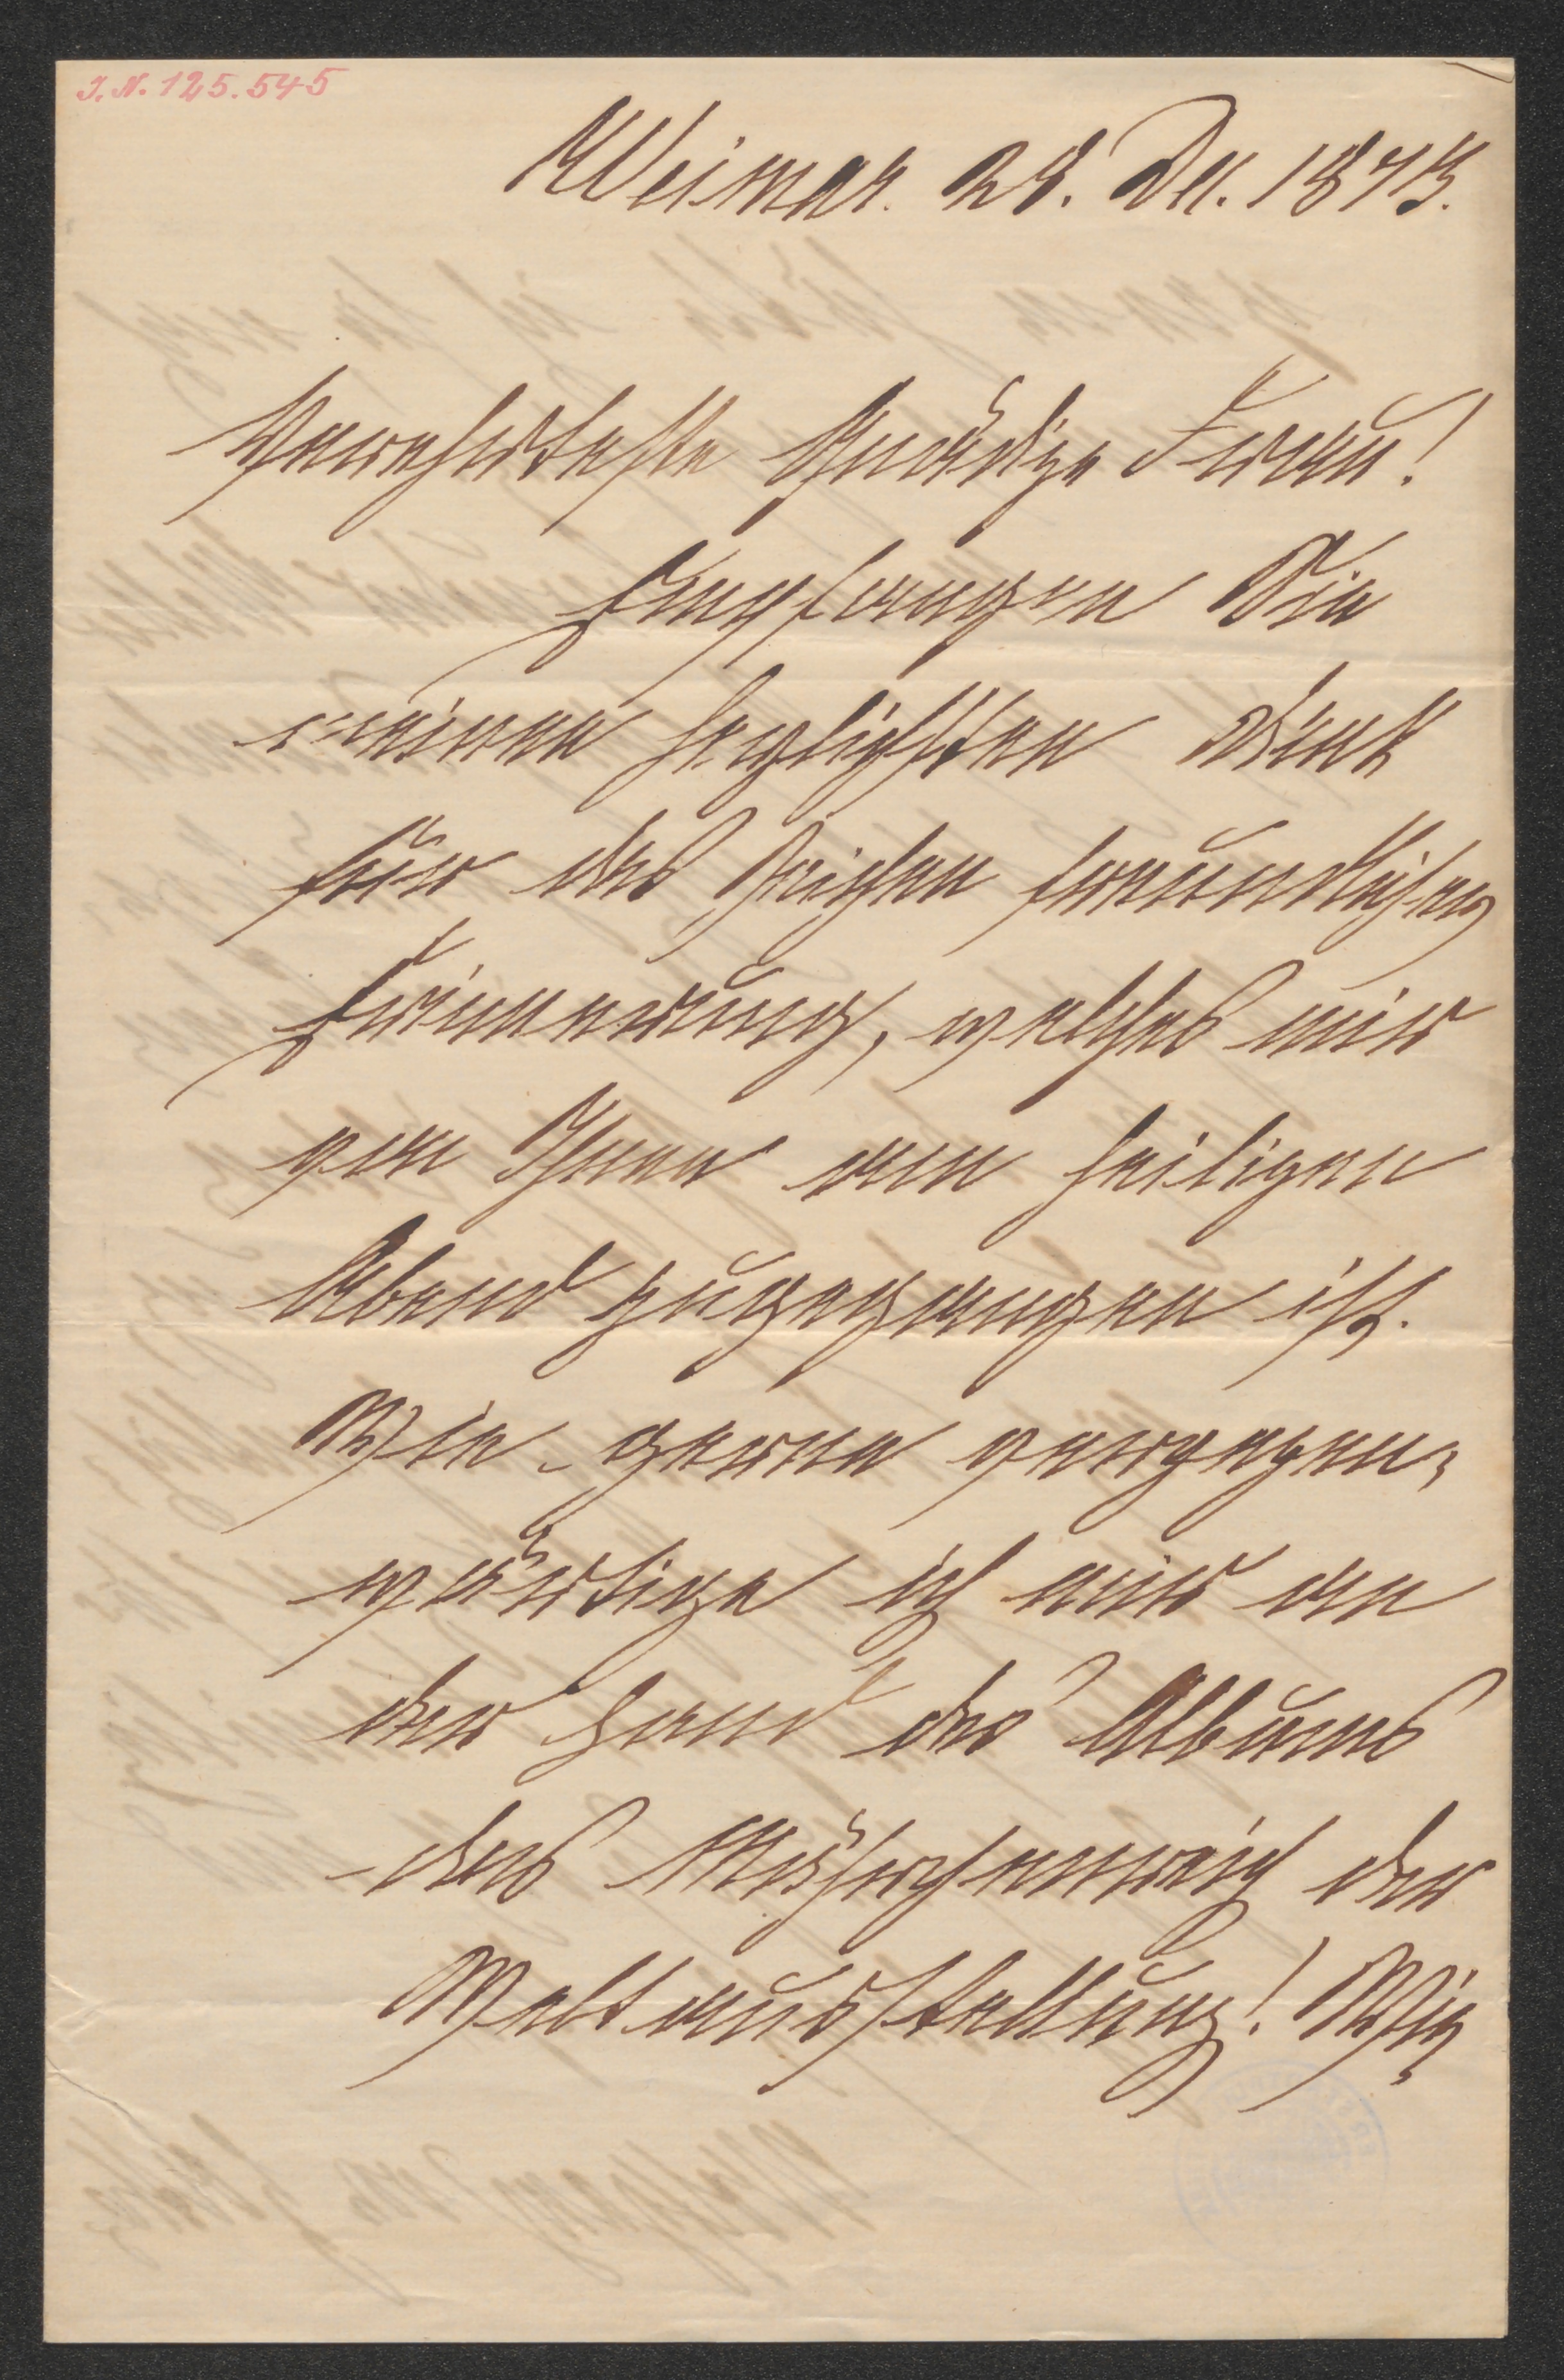 J. N. 125.545
Weimar. 28. Dec. 1873.
Verehrteste Gnädige Frau!
Empfangen Sie
meinen herzlichsten Dank
für das Zeichen freundlicher
Erinnerung, welches mir
von Ihnen am heiligen
Abend zugegangen ist.
Wie gerne vergegen-
wärtige ich mir an
der Hand des Albums
das Märchenreich der
Weltausstellung! Wie